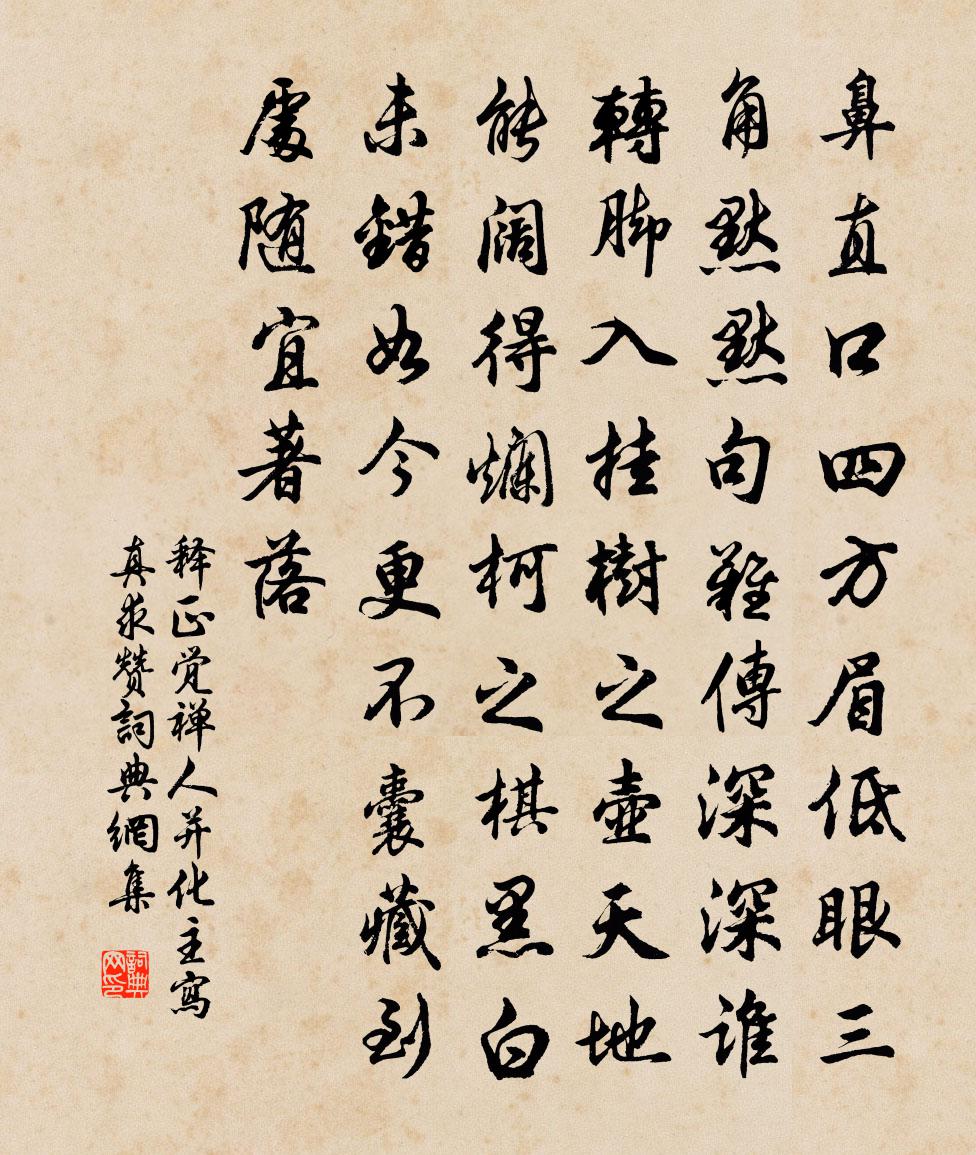 鼻直口四方眉低眼三
角默默句難傳深深誰
轉脚入挂樹之壺天地
能阔得爛柯之棋黑白
未錯如今更不囊藏到
處随宜著落
释正觉禅人并化主寫
真求赞詞典網集
詞典网印